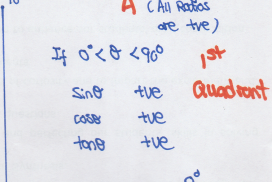 A (All Ratios
are tve)
If 0°<θ<90° 1st
Quadrant
sinθ tve
cosθ tve
tanθ tve